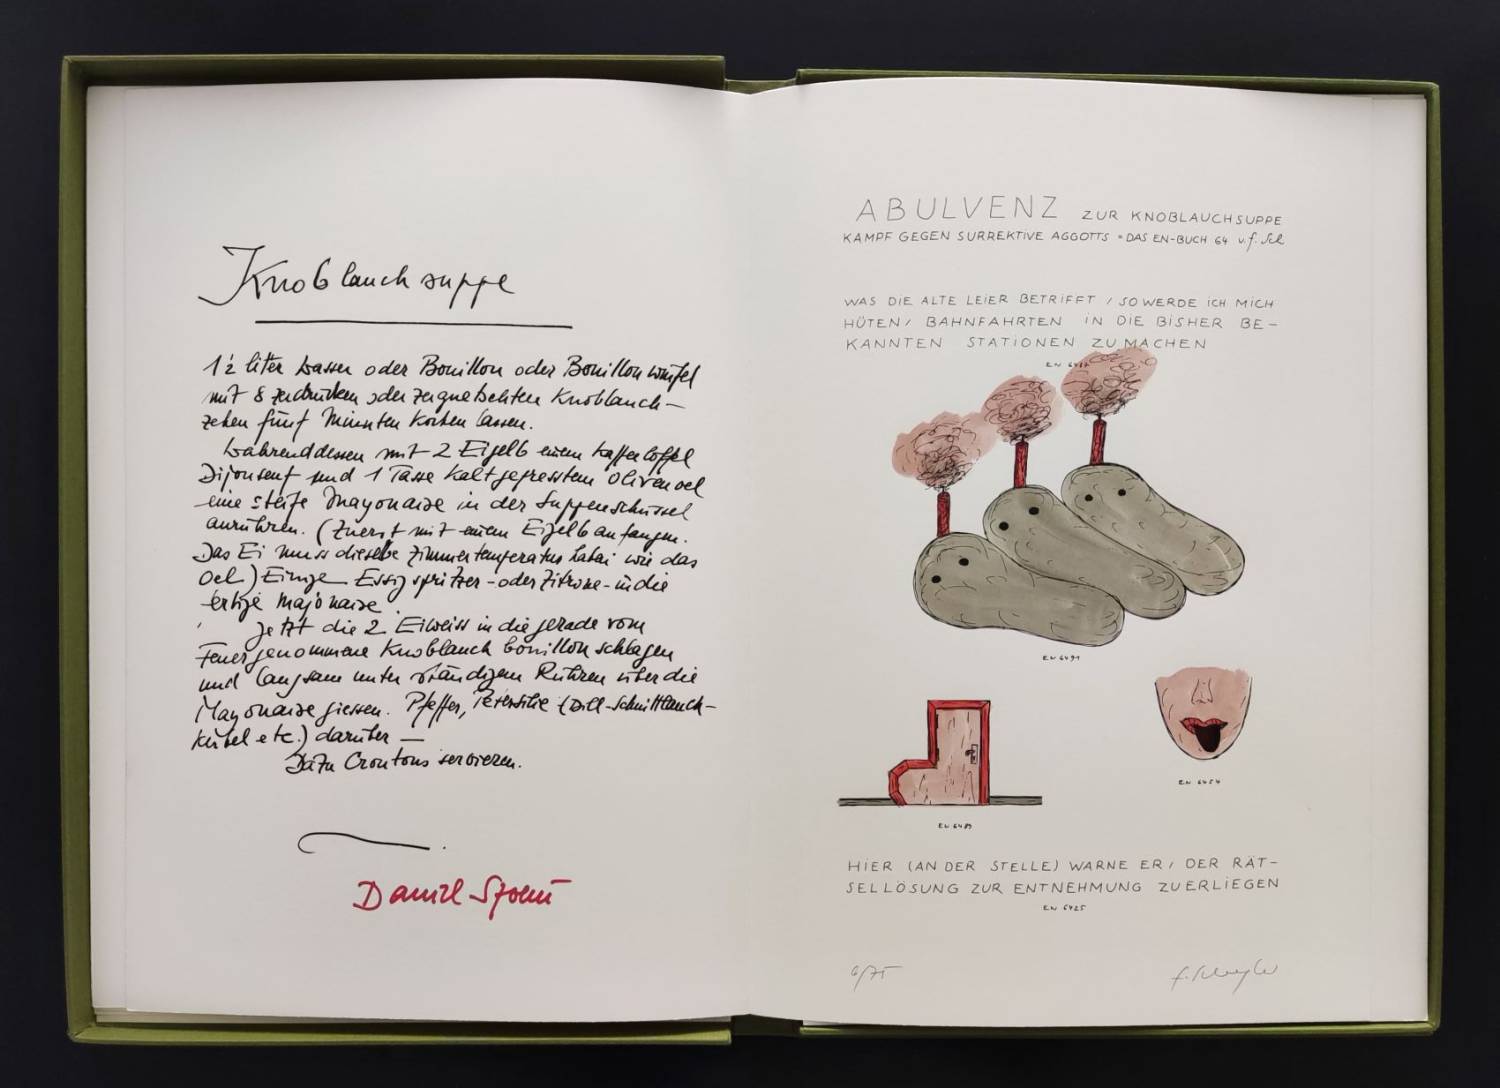 Knoblauchsuppe
1½ liter Wasser oder Bouillon oder Bouillonwürfel
mit 8 zerdrückten oder zerquetschten Knoblauch-
zehen fünf Minuten kochen lassen.
Währenddessen mit 2 Eigelb einem Kaffeelöffel
Dijonsenf und 1 Tasse kaltgepresstem Olivenoel
eine steife Mayonaise in der Suppenschüssel
anrühren. (Zuerst mit einem Eigelb anfangen.
Das Ei muss dieselbe Zimmertemperatur haben wie das
Oel) Einige Essigspritzer - oder Zitrone - in die
fertige Majonaise.
Jetzt die 2 Eiweiss in die gerade vom
Feuer genommene Knoblauchbouillon schlagen
und langsam unter ständigem Rühren über die
Mayonaise giessen. Pfeffer, Petersilie (Dill-Schnittlauch-
Kerbel etc.) darüber —
Dazu Croutons servieren.
Daniel Spoerri
ABULVENZ ZUR KNOBLAUCHSUPPE
KAMPF GEGEN SURREKTIVE AGGOTTS = DAS EN-BUCH 64 v. f. Sch
WAS DIE ALTE LEIER BETRIFFT / SO WERDE ICH MICH
HÜTEN / BAHNFAHRTEN IN DIE BISHER BE-
KANNTEN STATIONEN ZU MACHEN
EN 6491
EN 6454
EN 6489
HIER (AN DER STELLE) WARNE ER / DER RÄT-
SELLÖSUNG ZUR ENTNEHMUNG ZU ERLIEGEN
EN 6425
6/75